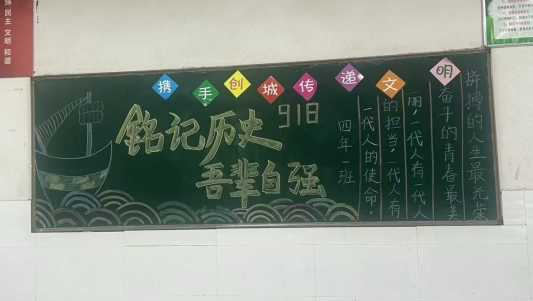 强 民主 文明 和谐
携手创城传递文明
铭记历史
918
吾辈自强
四年一班
拼搏的人生最光荣
奋斗的青春最美
丽，一代人有一代人
的担当，一代人有
一代人的使命。